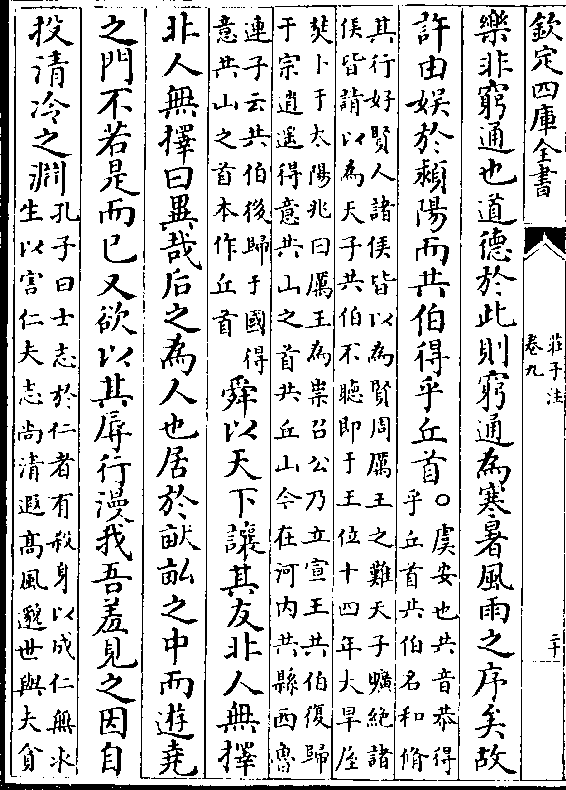 欽定四庫全書
莊子注
卷九
二十
樂非窮通也道德於此則窮通為寒暑風雨之序矣故
許由娛於潁陽而共伯得乎丘首○
虞安也共音恭得
乎丘首共伯名和脩
其行好賢人諸侯皆以為賢周厲王之難天子曠絕諸
侯皆請以為天子共伯不聽即于王位十四年大旱屋
焚卜于太陽兆曰厲王為祟召公乃立宣王共伯復歸
于宗逍遥得意共山之首共丘山今在河内共縣西魯
連子云共伯後歸于國得
意共山之首本作丘首
舜以天下讓其友非人無擇
非人無擇曰異哉后之為人也居於畎畝之中而遊堯
之門不若是而已又欲以其辱行漫我吾羞見之因自
投清冷之淵
孔子曰士志於仁者有殺身以成仁無求
生以害仁夫志尚清遐髙風邈世與夫貪